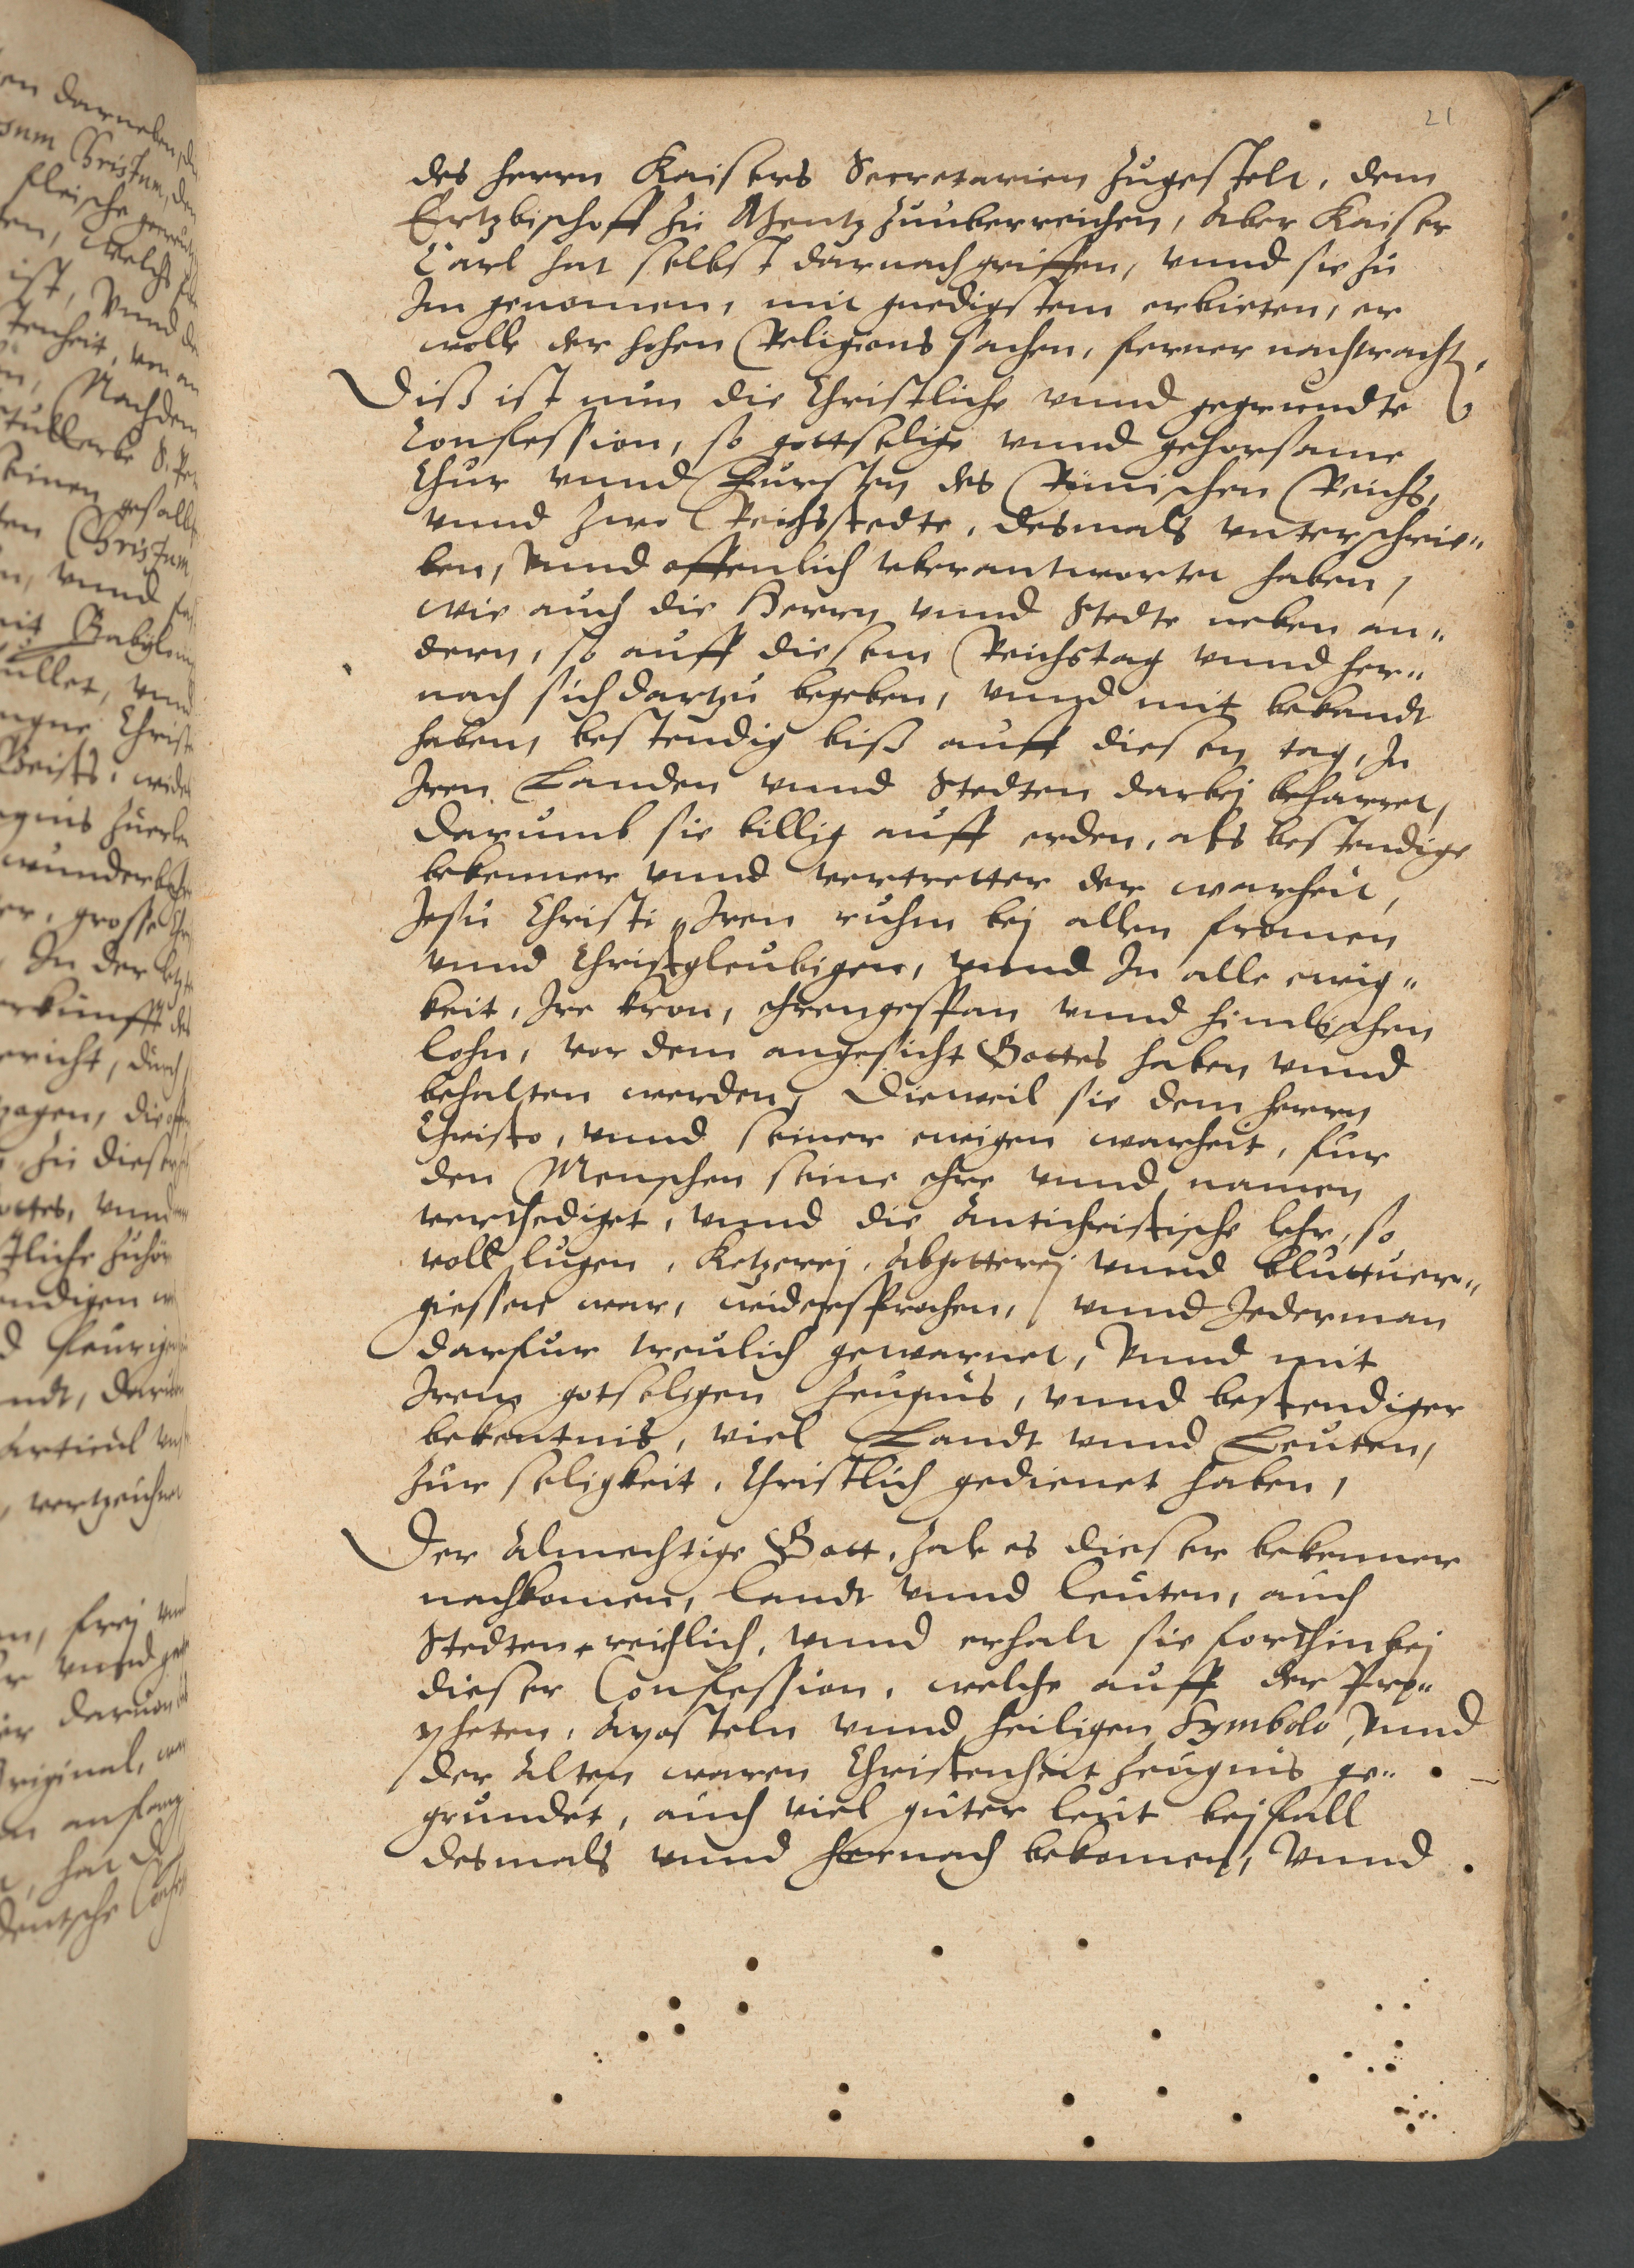 21
des herrn Kaisers Secretarien zugestelt, dem
Ertzbischoff zu Mentz zuuberreichen, Aber Kaiser
Carl hat selbst darnach griffen, vnnd sie zu
Im genomen, mit gnedigstem erbieten, er
wolle der hohen Religions sachen, ferner nachtrachten,
Diß ist nun die Christliche vnnd gegrundte
Confession, so gottselige vnnd gehorsame
Chur vnnd Fursten des Römischen Reichs,
vnnd zwo Reichsstedte, desmals vnterschrie„
ben, Vnnd offenlich vberantwortet haben,
wie auch die Herrn vnnd Stedte neben an„
dern, so auff diesem Reichstag vnnd her„
nach sich dartzu begeben, vnnd mit bekandt
haben, bestendig biß auff diesen tag, In
Iren Landen vnnd Stedten darbej beharret,
Darumb sie billig auff erden, als bestendige
bekenner vnnd vertretter der warheit,
Jesu Christi, Iren ruhm bej allen fromen
vnnd Christgleubigen, vnnd In alle ewig„
keit, Ire kron, ehrengespan vnnd himlischen
lohn, vor dem angesicht Gottes haben vnnd
behalten werden, Dieweil sie dem herrn
Christo, vnnd seiner ewigen warheit, fur
den Menschen seine ehre vnnd namen
verthediget, vnnd die Antichristische lehr, so
voll lugen, Ketzerej, Abgotterej vnnd bluttuer„
giessens war, widersprochen, vnnd Jederman
darfur treulich gewarnet, Vnnd mit
Irem gotseligen zeugnus, vnnd bestendiger
bekentnis, viel Landt vnnd Leuten,
zur seligkeit, Christlich gedienet haben,
Der Almechtige Gott, zale es dieser bekenner
nachkomen, landt vnnd leuten, auch
Stedten reichlich, vnnd erhalt sie forthin bej
dieser Confession, welche auff der Pro„
pheten, Aposteln vnnd heiligen Symbolo, Vnnd
der Alten waren Christenheit zeugnis ge„
grundet, auch viel guter leut bejfall
desmals vnnd hernach bekomen, Vnnd